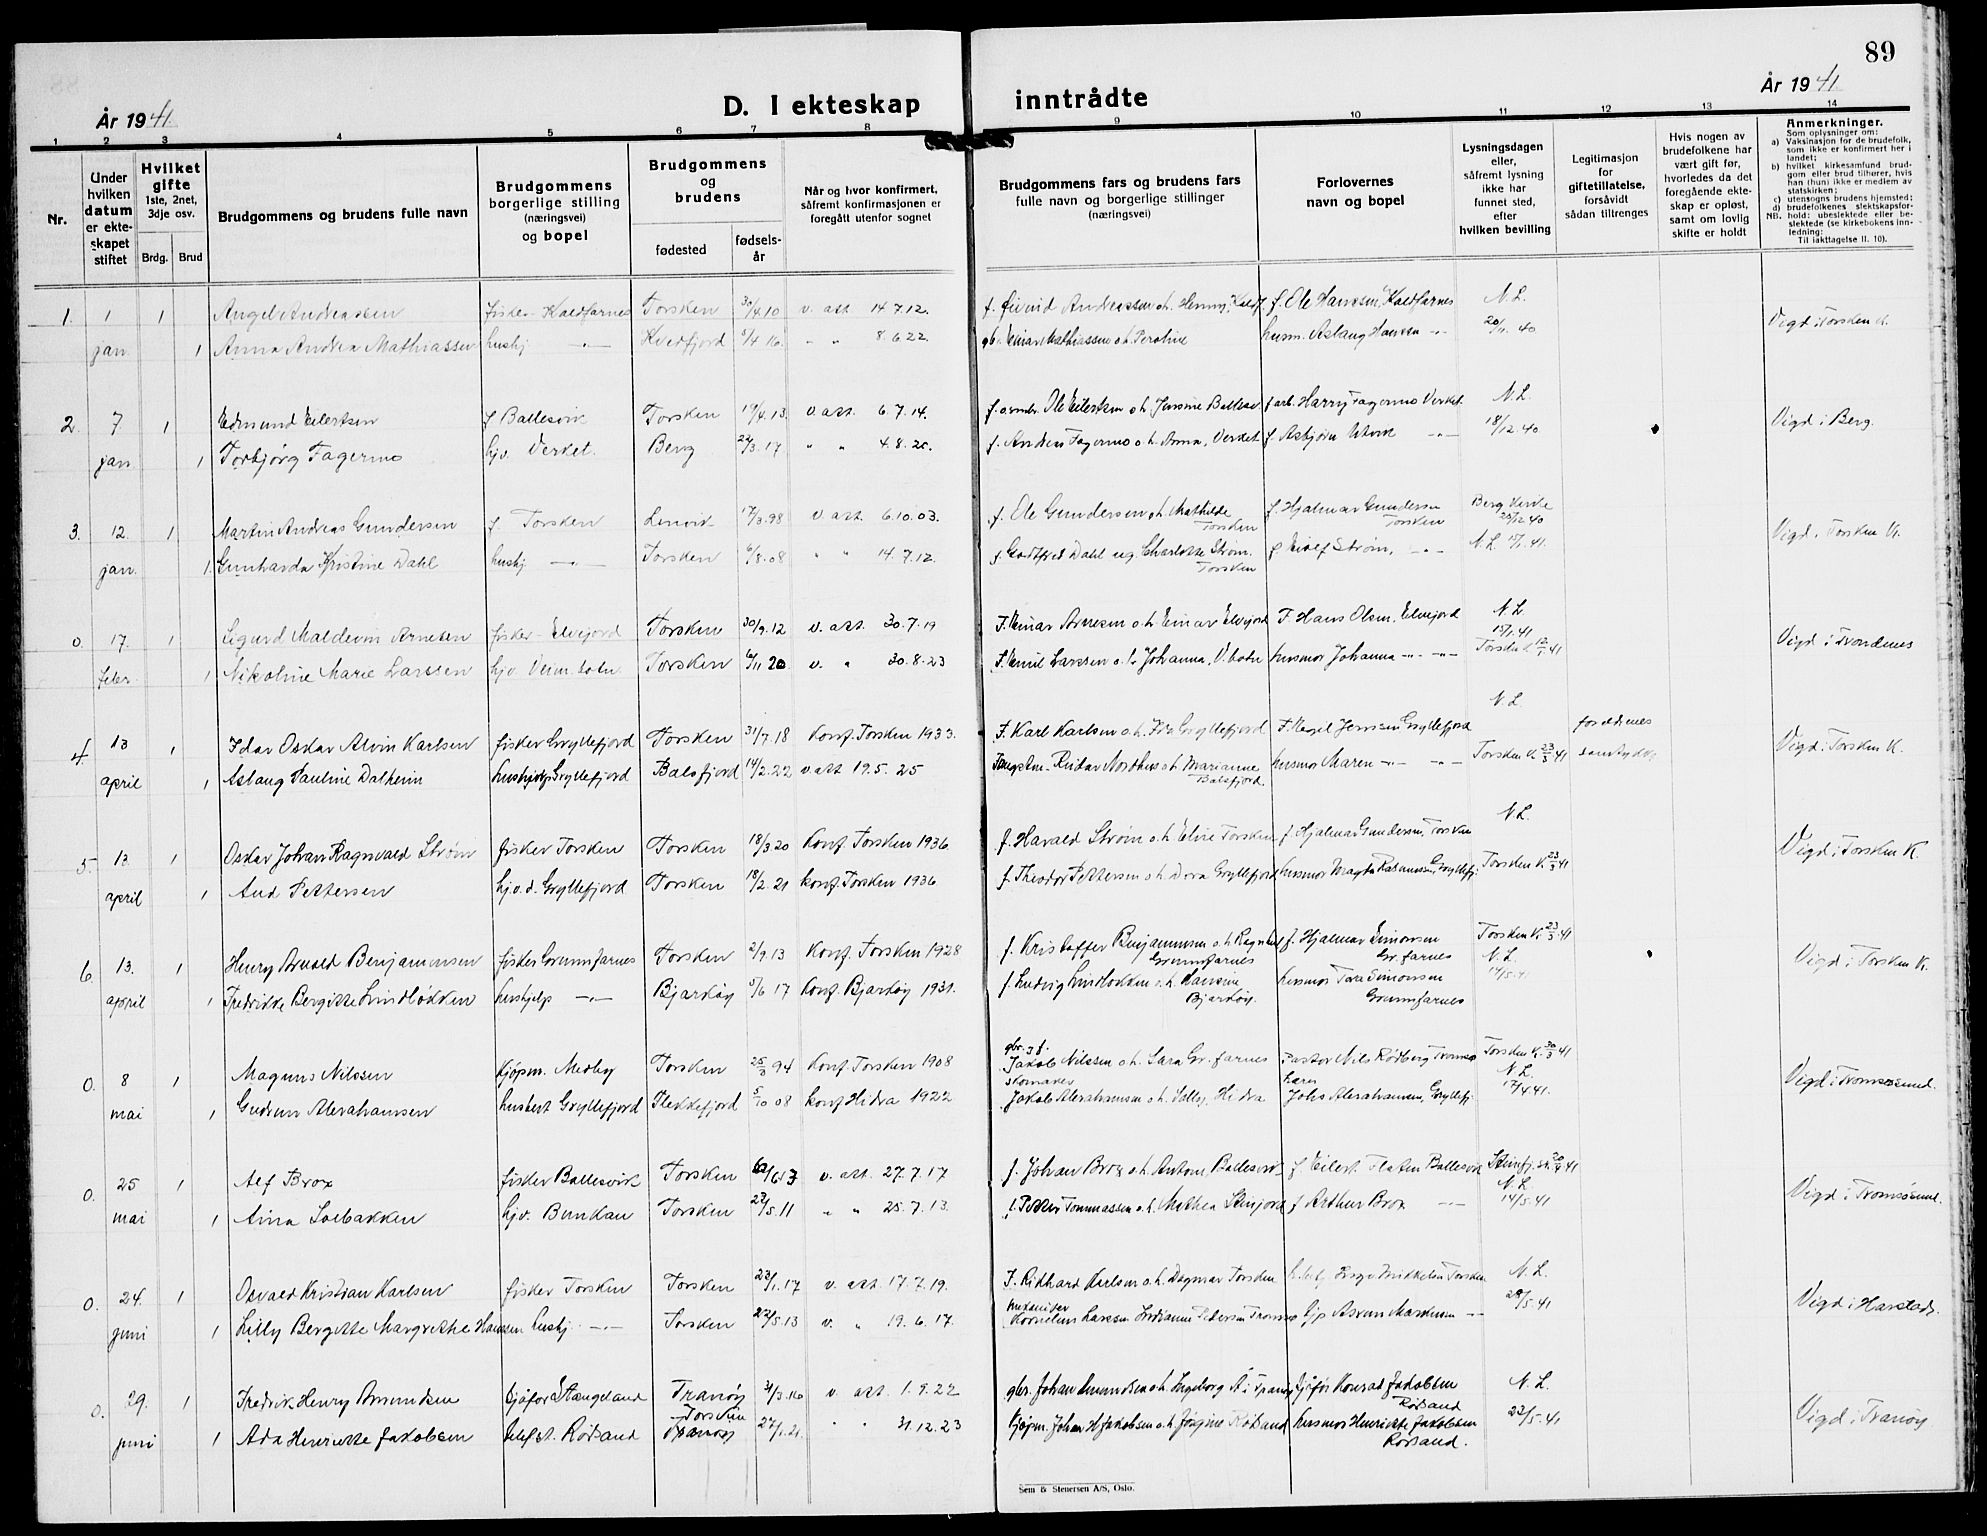 89
År 1941.
D. I ekteskap inntrådte
År 1941.
1 2 3 4 5 6 7 8 9 10 11 12 13 14
Nr.
Under hvilken datum er ekteskapet stiftet
Hvilket gifte 1ste, 2net, 3dje osv.
Brdg. Brud
Brudgommens og brudens fulle navn
Brudgommens borgerlige stilling (næringsvei) og bopel
Brudgommens og brudens
fødested
fødselsår
Når og hvor konfirmert, såfremt konfirmasjonen er foregått utenfor sognet
Brudgommens fars og brudens fars fulle navn og borgerlige stillinger (næringsvei)
Forlovernes navn og bopel
Lysningsdagen eller, såfremt lysning ikke har funnet sted, efter hvilken bevilling
Legitimasjon for giftetillatelse, forsåvidt sådan tiltrenges
Hvis nogen av brudefolkene har vært gift før, hvorledes da det foregående ekteskap er opløst, samt om lovlig skifte er holdt
Anmerkninger.
Som oplysninger om:
a) Vaksinasjon for de brudefolk, som ikke er konfirmert her i landet;
b) hvilket kirkesamfund brudgom eller brud tilhører, hvis han (hun) ikke er medlem av statskirken;
c) utensogns brudens hjemsted;
d) brudefolkenes slektskapsforhold: ubeslektede eller beslektede (se kirkebokens innledning:
NB. Til iakttagelse II. 10).
1. 1 1 Angel Andreassen fisker Kaldfarnes Torsken 30/4.10 v. att. 14.7.12. f. Eivind Andreassen o.h. Henny, Kaldf. f. Ole Hanssen, Kaldfarnes N.L.
jan. 1 Anna Andrea Mathiassen hushj —"— Kvedfjord 5/4 16. " " 8.6.22. gbr. Einar Mathiassen o.h. Peroline husm. Aslaug Hanssen -"- 20/11.40 Vigd i Torsken k.
2. 7 1 Edmund Eilertsen f Ballesvik Torsken 19/4.13 v. att. 6.7.14. Ole Eilertsen o.h. Jensine Ballesv. f. arb. Harry Fagermo Verket N.L. Vigd i Berg.
jan 1 Torbjørg Fagermo hjv. Verket. Berg 24/3.17 " " 4.8.20. f. Andreas Fagermo o.h. Anna, Verket f Asbjørn —"— 18/12.40
3. 12. 1 Martin Andreas Gundersen f. Torsken Lenvik 17/3.98 v. att. 6.10.03. f. Ole Gundersen o.h. Mathilde Torsken f. Hjalmar Gundersen Torsken Berg kirke 22/12 40
jan. 1. Gunharda Kristine Dahl hushj —"— Torsken 6/8.08 " " 14.7.12. f. Godtfred Dahl ug. Charlotte Strøm. Torsken f Eilef Strøm, —"— N.L. 15/1.41. Vigd i Torsken k.
0. 17. 1 Sigurd Maldevin Arnesen fisker - Elvefjord Torsken 30/9.12 v. att. 30.7.19 F. Einar Arnesen o.h. Elvefjord F. Hans Olsen, Elvefjord N.L. 15/1.41
febr. 1 Nikoline Marie Larssen hjv. Torsken 6/11 20 v. " 30.8.23 F. Emil Larssen o.h. Johanna, V.botn husmor Johanna -"- -"- Torsken k 12/1 41 Vigd i Trondenes
4. 13 1 Idar Oskar Alvin Karlsen fisker Gryllefjord Torsken 31/7.18 Konf. Torsken 1933. F. Karl Karlsen o.h. Ida Gryllefjord F. Jenssen Gryllefjord N.L. foreldrenes
april 1 Aslaug Pauline Dalheim hushjelp Gryllefjord Balsfjord 14/2.22 v. att 19.5.25 Reidar Nordhus o.h. Marianne Balsfjord husmor Maren -"- -"- Torsken k. 23/3 41 samtykke Vigd i Torsken k.
5. 13. 1 Oskar Johan Ragnvald Strøm fisker Torsken Torsken 18/3 20 Konf Torsken 1936. f. Harald Strøm o.h. Elvie Torsken f. Hjalmar Gundersen, Torsken N.L.
april 1 Aud Pettersen hjv.d. Gryllefjord Torsken 18/2.21 konf. Torsken 1936 f. Theodor Pettersen o.h. Dora Gryllefjord husmor Magda Rasmussen, Gryllefj. Torsken k. 23/3 41 Vigd i Torsken k.
6. 13. 1 Henry Arnold Benjaminsen fisker Grunnfarnes Torsken 2/9.13 Konf. Torsken 1928 f. Kristoffer Benjaminsen o.h. Ragnhild Grunnfarnes f. Hjalmar Simonsen Gr.farnes Torsken k. 23/3.41 N.L.
april 1 Fredrikke Bergitte Lindbakken hushjelp —"— Bjarkøy 5/6 17 Konf. Bjarkøy 1931. f. Ludvig Lindbakken o.h. Hansine Bjarkøy. husmor Tora Simonsen Grunnfarnes Vigd i Torsken k.
0. 8 1 Magnus Nilssen Kjøpm. Medby Torsken 25/3 94 Konf Torsken 1908 gbr. og f. Jakob Nilssen o.h. Sara Gr.farnes Pastor Nils Rødberg Tromsø Torsken k. 30/3 41 N.L.
mai 1 Gudrun Abrahamsen husbest Gryllefjord Flekkefjord 5/10 08 konf Hidra 1922 skomaker Jakob Abrahamsen o.h. Salby, Hidra lærer Johs Abrahamsen, Gryllefj. 17/4 41. Vigd i Tromsøsund.
0. 25 1 Alf Brox fisker Ballesvik Torsken v. att. 27.7.17 f. Johan Brox o.h. Antone, Ballesvik f Eilert Flaten Ballesvik N.L.
mai 1 Aina Solbakken hjv. Bunkan Torsken 23/5.11 " " 25.7.13. Petter Tommassen o.h. Mathea Steinfjord f Arthur Brox —"— 14/5.41 Vigd i Tromsøsund.
0. 24. 1 Osvald Kristian Karlsen fisker Torsken Torsken 23/1.17 v. att. 17.7.19. F. Rikhard Karlsen o.h. Dagmar Torsken Mikkelsen Torsken N.L.
juni 1 Lilly Bergitte Margrethe Hanssen hushj. —"— Torsken 22/5.13 v. " 19.6.17. Kornelius Larssen Pedersen Tromsø -"- 28/5.41 Vigd i Harstad.
0. 29. 1 Fredrik Henry Amundsen sjåfør Stangeland Tranøy 31/3.16 v. att. 1.9.22 gbr. Johan Amundsen o.h. Ingeborg Å i Tranøy sjåfør Konrad Jakobsen Rødsand N.L.
juni 1 Ada Henriette Jakobsen Rødsand Torsken Tranøy 27/1.21. " " 31.12.23 kjøpm. Johan H Jakobsen o.h. Jørgine Rødsand husmor Henriette Jakobsen Rødsand. 23/5.41 Vigd i Tranøy
Sem & Stenersen A/S, Oslo.